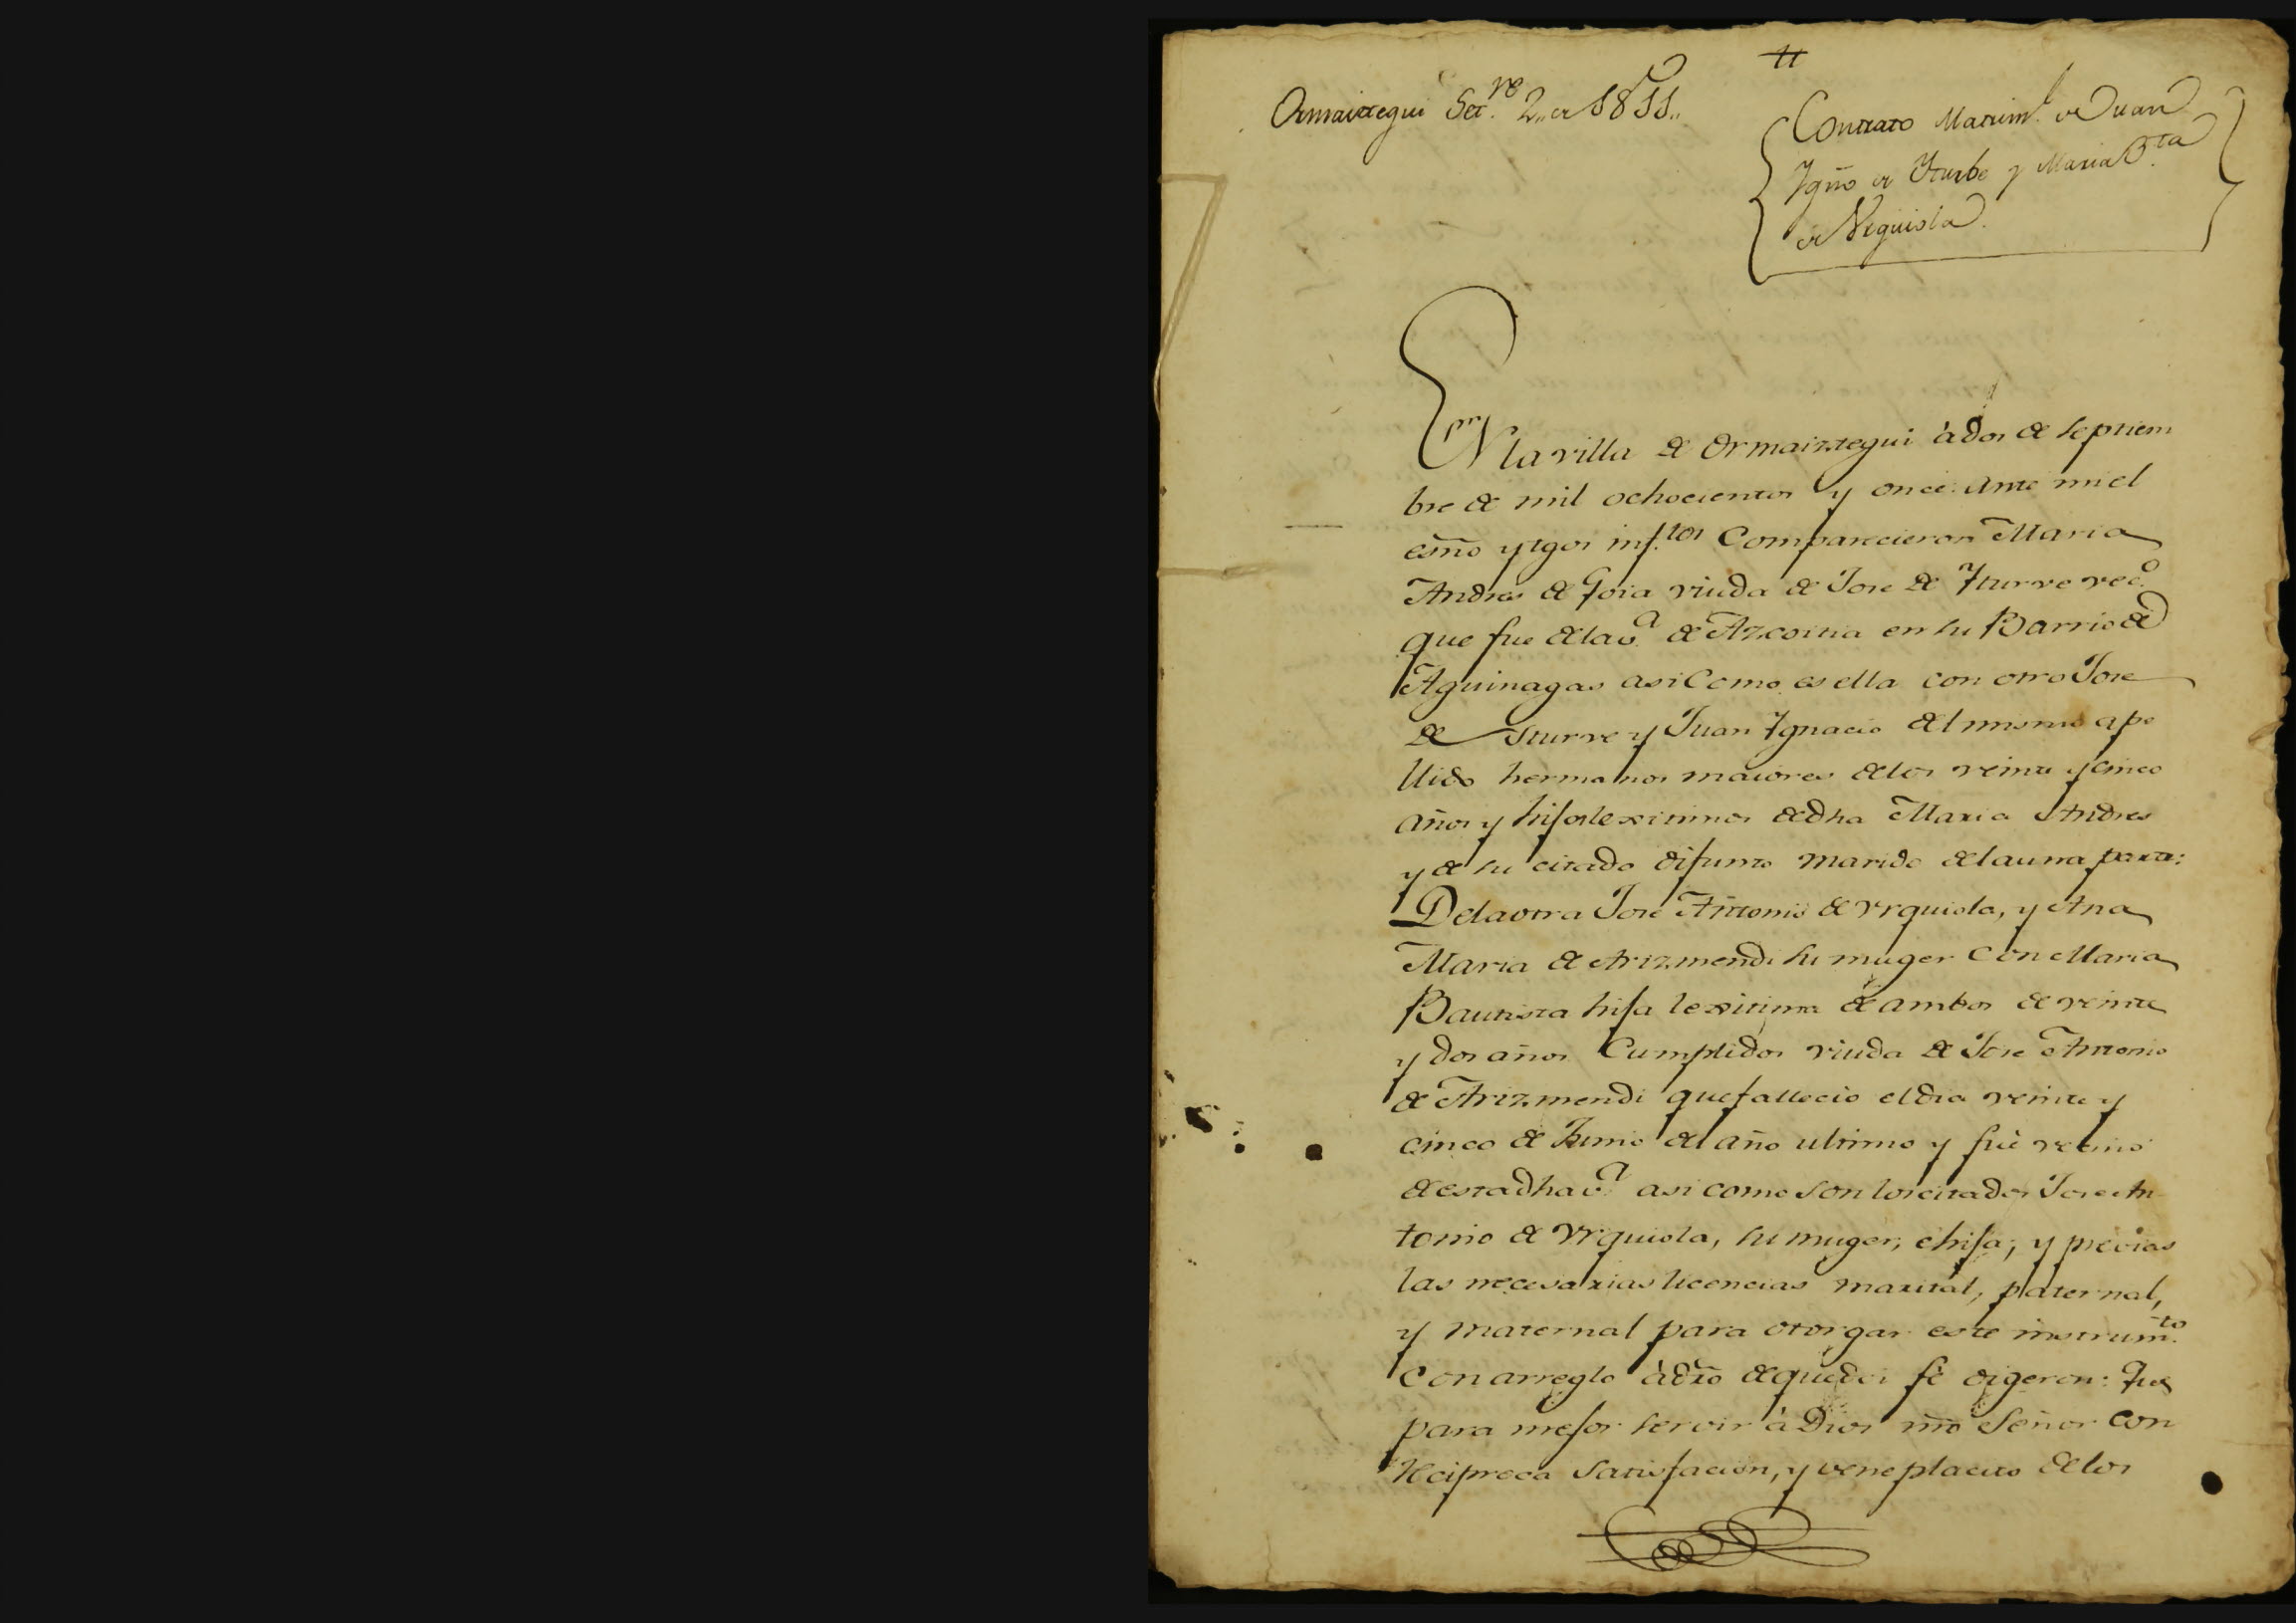 Ormaiztegui Set.re 2,, de 1811,,
Contrato Matrim.l de Juan
Ygño de Yturbe y Maria B.ta
de Vrquiola
En la villa de Ormaiztegui à dos de septiem
bre de mil ochocientos y once: ante mi el
esño y tgos inf.tos Comparecieron Maria
Andres de Goia viuda de Jose de Yturve vec.o
que fue de la v.a de Azcoitia en su Barrio de
Aguinagas asi Como es ella con otro Jose
de Yturve y Juan Ygnacio del mismo ape
llido hermanos maiores de los veinte y cinco
años y hijos lexitimos de dha Maria Andres
y de su citado difunto marido de la una parte:
De la otra Jose Antonio de Vrquiola, y Ana
Maria de Arizmendi su muger con Maria
Bautista hija lexitima de ambos de veinte
y dos años Cumplidos viuda de Jose Antonio
de Arizmendi que fallecio el dia veinte y
cinco de Junio del año ultimo y fué vecino
de esta dha v.a asi como son los citados Jose An
tonio de Vrquiola, su muger, e hija; y previas
las necesarias licencias marital, paternal,
y maternal para otorgar este instrum.to
con arreglo à dro de que doi fé digeron: Que
para mejor servir à Dios nro Señor con
Reciproca Satisfacion, y veneplacito de los